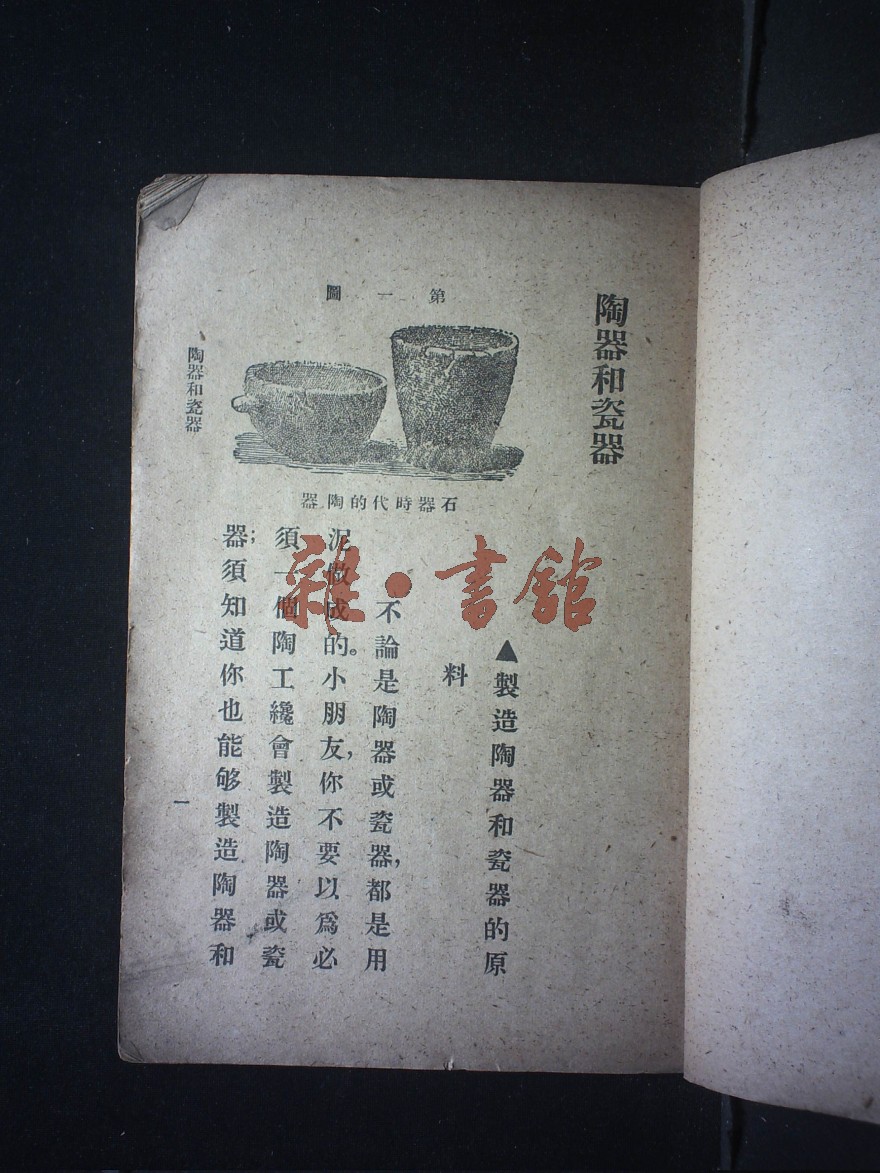 陶器和瓷器
第一圖
石器時代的陶器
▲製造陶器和瓷器的原
料
不論是陶器或瓷器，都是用
泥做成的。小朋友，你不要以爲必
須一個陶工纔會製造陶器或瓷
器；須知道你也能够製造陶器和
陶器和瓷器
一
雜·書館